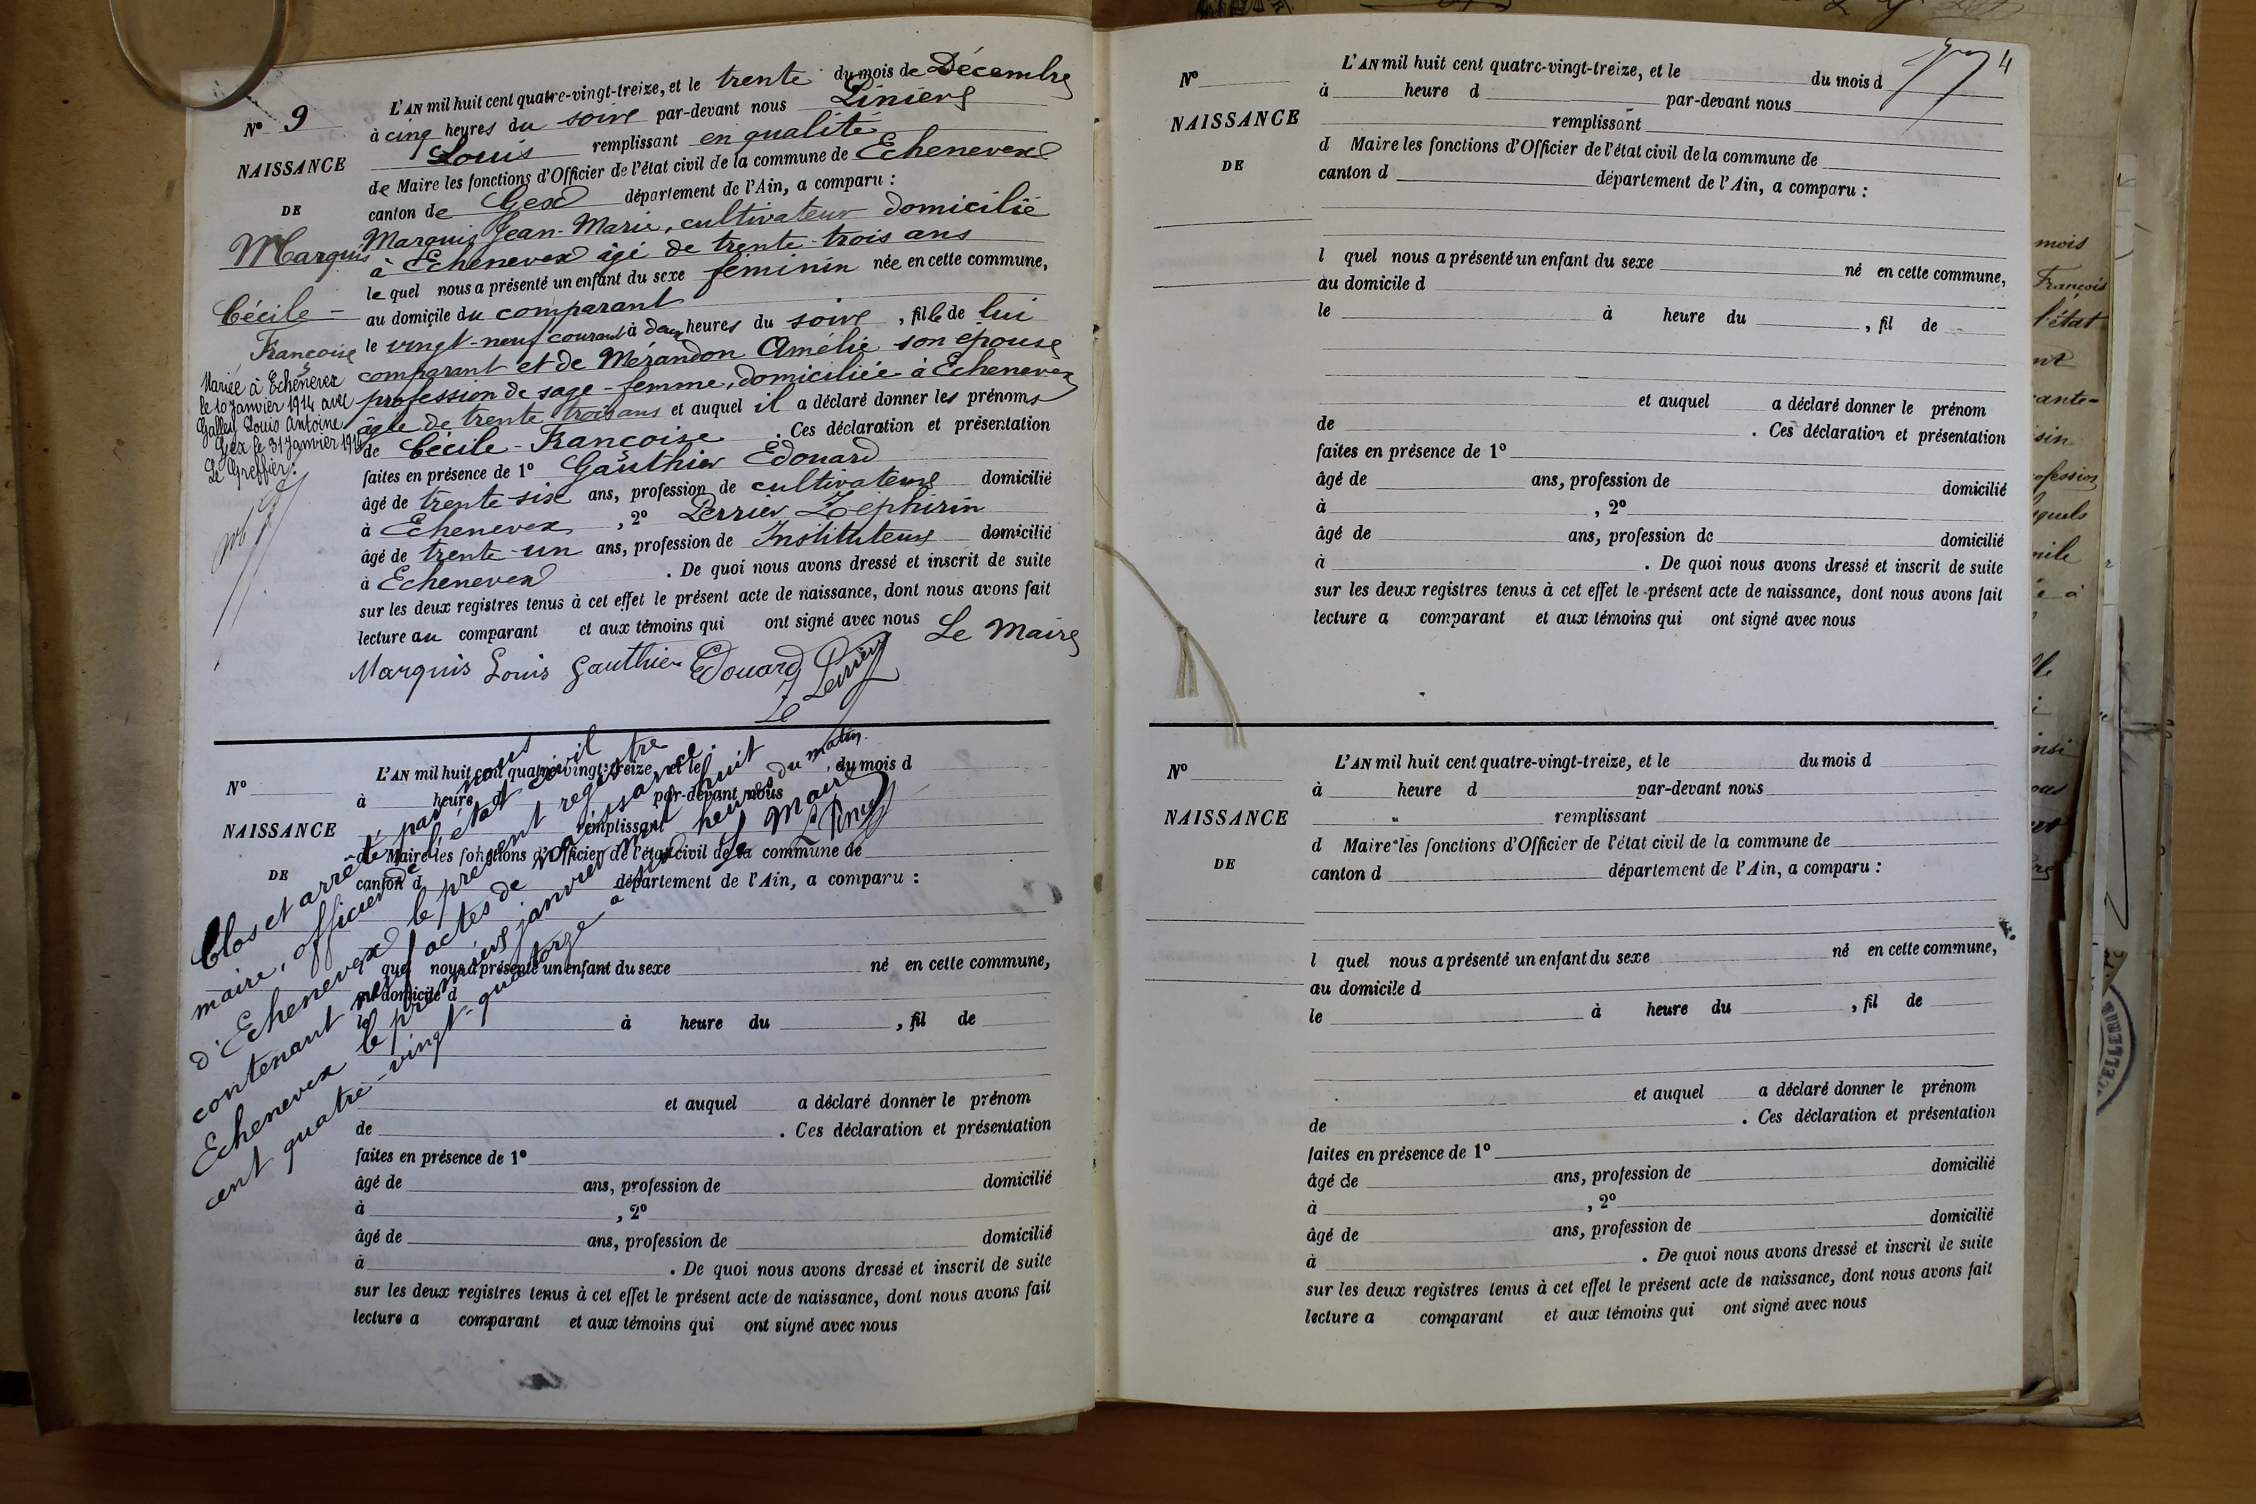 N° 9
NAISSANCE
DE
Marquis
Cécile -
Françoise
Mariée à Echenevex
le 10 Janvier 1914 avec
Galley Louis Antoine
Gex le 31 Janvier 1914
Le Greffier.
L'AN mil huit cent quatre-vingt-treize, et le trente du mois de Décembre
à cinq heures du soir par-devant nous Liniers
Louis remplissant en qualité
de Maire les fonctions d'Officier de l'état civil de la commune de Echenevex
canton de Gex département de l'Ain, a comparu :
Marquis Jean-Marie, cultivateur domicilié
à Echenevex âgé de trente-trois ans
lequel nous a présenté un enfant du sexe féminin née en cette commune,
au domicile du comparant
le vingt-neuf courant à deux heures du soir, fille de lui
comparant et de Mérandon Amélie son épouse
profession de sage-femme, domiciliée à Echenevex
âgée de trente trois ans et auquel il a déclaré donner les prénoms
de Cécile-Françoise. Ces déclaration et présentation
faites en présence de 1° Gauthier Edouard
âgé de trente-six ans, profession de cultivateur domicilié
à Echenevex, 2° Perrier Zéphirin
âgé de trente-un ans, profession de Instituteur domicilié
à Echenevex. De quoi nous avons dressé et inscrit de suite
sur les deux registres tenus à cet effet le présent acte de naissance, dont nous avons fait
lecture au comparant et aux témoins qui ont signé avec nous Le Maire
Marquis Louis Gauthier Edouard Z Perrier
N°
NAISSANCE
DE
L'AN mil huit cent quatre-vingt-treize, et le du mois d
à heure d par-devant nous
remplissant
d Maire les fonctions d'Officier de l'état civil de la commune de
canton d département de l'Ain, a comparu :
l quel nous a présenté un enfant du sexe né en cette commune,
au domicile d
le à heure du , fil de
et auquel a déclaré donner le prénom
de . Ces déclaration et présentation
faites en présence de 1°
âgé de ans, profession de domicilié
à , 2°
âgé de ans, profession de domicilié
à . De quoi nous avons dressé et inscrit de suite
sur les deux registres tenus à cet effet le présent acte de naissance, dont nous avons fait
lecture a comparant et aux témoins qui ont signé avec nous
Clos et arrêté par nous
maire, officier de l'état civil
d'Echenevex le présent registre
contenant neuf actes de naissance.
Echenevex le premier janvier mil huit
cent quatre-vingt-quatorze à heures du matin.
Le Maire
4
N°
NAISSANCE
DE
L'AN mil huit cent quatre-vingt-treize, et le du mois d
à heure d par-devant nous
remplissant
d Maire les fonctions d'Officier de l'état civil de la commune de
canton d département de l'Ain, a comparu :
l quel nous a présenté un enfant du sexe né en cette commune,
au domicile d
le à heure du , fil de
et auquel a déclaré donner le prénom
de . Ces déclaration et présentation
faites en présence de 1°
âgé de ans, profession de domicilié
à , 2°
âgé de ans, profession de domicilié
à . De quoi nous avons dressé et inscrit de suite
sur les deux registres tenus à cet effet le présent acte de naissance, dont nous avons fait
lecture a comparant et aux témoins qui ont signé avec nous
N°
NAISSANCE
DE
L'AN mil huit cent quatre-vingt-treize, et le du mois d
à heure d par-devant nous
remplissant
d Maire les fonctions d'Officier de l'état civil de la commune de
canton d département de l'Ain, a comparu :
l quel nous a présenté un enfant du sexe né en cette commune,
au domicile d
le à heure du , fil de
et auquel a déclaré donner le prénom
de . Ces déclaration et présentation
faites en présence de 1°
âgé de ans, profession de domicilié
à , 2°
âgé de ans, profession de domicilié
à . De quoi nous avons dressé et inscrit de suite
sur les deux registres tenus à cet effet le présent acte de naissance, dont nous avons fait
lecture a comparant et aux témoins qui ont signé avec nous
mois
François
l'état